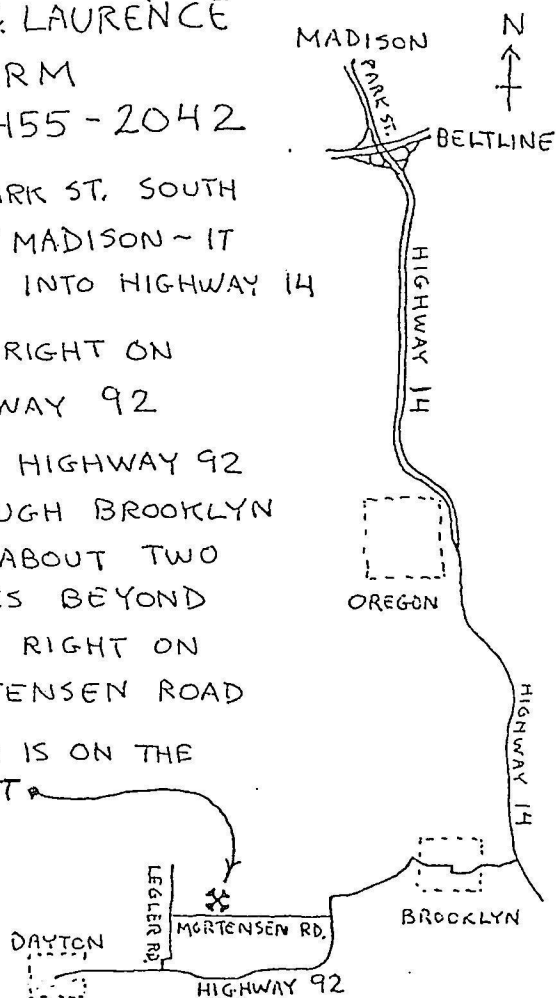 LAURENCE
RM
455-2042
RK ST. SOUTH
MADISON ~ IT
INTO HIGHWAY 14
RIGHT ON
WAY 92
HIGHWAY 92
UGH BROOKLYN
ABOUT TWO
ES BEYOND
RIGHT ON
TENSEN ROAD
IS ON THE
T
MADISON
N
PARK ST.
BELTLINE
HIGHWAY 14
OREGON
HIGHWAY 14
BROOKLYN
LEGLER RD.
MORTENSEN RD.
DAYTON
HIGHWAY 92